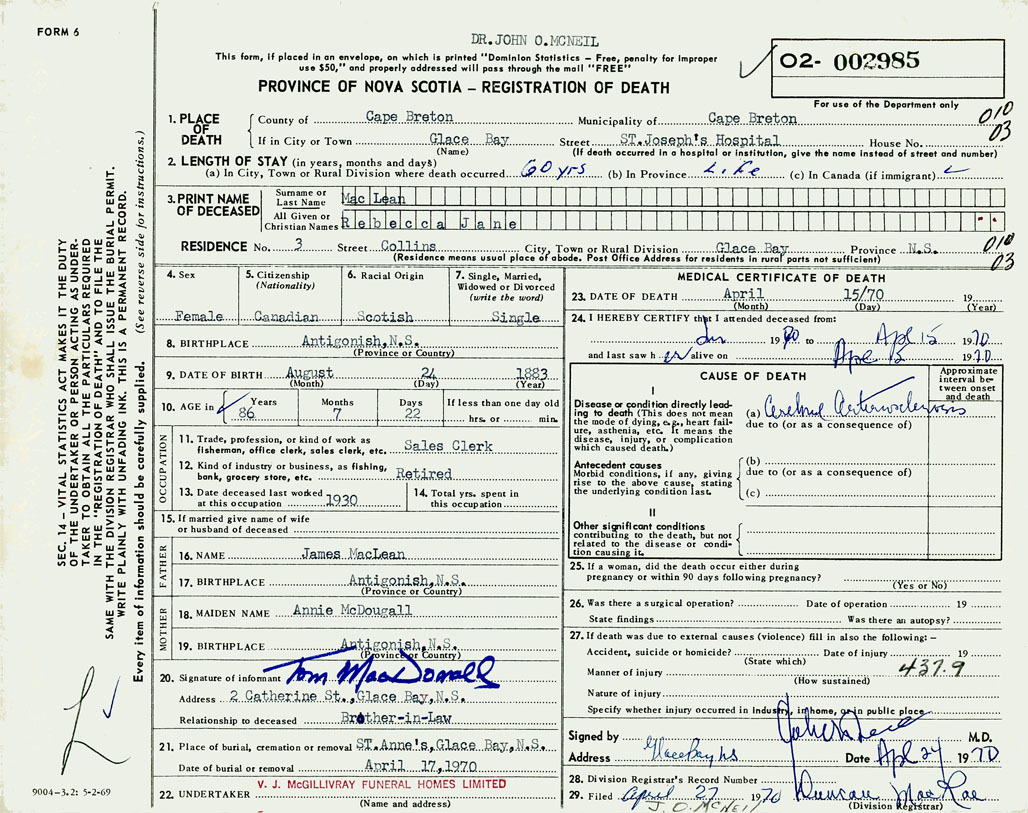 FORM 6
DR. JOHN O. MCNEIL
This form, if placed in an envelope, on which is printed "Dominion Statistics – Free, penalty for improper
use $50," and properly addressed will pass through the mail "FREE"
PROVINCE OF NOVA SCOTIA – REGISTRATION OF DEATH
02- 002985
For use of the Department only
010
03
1. PLACE OF DEATH
County of Cape Breton Municipality of Cape Breton
If in City or Town Glace Bay Street ST. Joseph's Hospital House No.
(Name) (If death occurred in a hospital or institution, give the name instead of street and number)
2. LENGTH OF STAY (in years, months and days)
(a) In City, Town or Rural Division where death occurred 60 yrs (b) In Province Life (c) In Canada (if immigrant)
3. PRINT NAME OF DECEASED
Surname or Last Name Mac Lean
All Given or Christian Names Rebecca Jane
RESIDENCE No. 3 Street Collins City, Town or Rural Division Glace Bay Province N.S.
(Residence means usual place of abode. Post Office Address for residents in rural parts not sufficient)
010
03
4. Sex
Female
5. Citizenship
(Nationality)
Canadian
6. Racial Origin
Scotish
7. Single, Married,
Widowed or Divorced
(write the word)
Single
8. BIRTHPLACE Antigonish, N.S.
(Province or Country)
9. DATE OF BIRTH August 24 1883
(Month) (Day) (Year)
10. AGE in Years 86 Months 7 Days 22 If less than one day old
hrs. or min.
OCCUPATION
11. Trade, profession, or kind of work as
fisherman, office clerk, sales clerk, etc. Sales Clerk
12. Kind of industry or business, as fishing,
bank, grocery store, etc. Retired
13. Date deceased last worked
at this occupation 1930
14. Total yrs. spent in
this occupation
15. If married give name of wife
or husband of deceased
FATHER
16. NAME James MacLean
17. BIRTHPLACE Antigonish, N.S.
(Province or Country)
MOTHER
18. MAIDEN NAME Annie McDougall
19. BIRTHPLACE Antigonish, N.S.
(Province or Country)
20. Signature of informant Tom MacDonald
Address 2 Catherine St., Glace Bay, N.S.
Relationship to deceased Brother-in-Law
21. Place of burial, cremation or removal ST. Anne's, Glace Bay, N.S.
Date of burial or removal April 17, 1970
22. UNDERTAKER V. J. McGILLIVRAY FUNERAL HOMES LIMITED
(Name and address)
MEDICAL CERTIFICATE OF DEATH
23. DATE OF DEATH April 15/70 19
(Month) (Day) (Year)
24. I HEREBY CERTIFY that I attended deceased from:
Jan 1970 to Apl 15 1970
and last saw her alive on Apl 15 1970
CAUSE OF DEATH
Approximate
interval be-
tween onset
and death
I
Disease or condition directly lead-
ing to death (This does not mean
the mode of dying, e.g., heart fail-
ure, asthenia, etc. It means the
disease, injury, or complication
which caused death.)
(a) Cerebral Arteriosclerosis
due to (or as a consequence of)
Antecedent causes
Morbid conditions, if any, giving
rise to the above cause, stating
the underlying condition last.
(b)
due to (or as a consequence of)
(c)
II
Other significant conditions
contributing to the death, but not
related to the disease or condi-
tion causing it.
25. If a woman, did the death occur either during
pregnancy or within 90 days following pregnancy?
(Yes or No)
26. Was there a surgical operation? Date of operation 19
State findings Was there an autopsy?
27. If death was due to external causes (violence) fill in also the following: –
Accident, suicide or homicide? Date of injury 19
(State which)
Manner of injury 437.9
(How sustained)
Nature of injury
Specify whether injury occurred in industry, in home, or in public place
Signed by M.D.
Address Glace Bay NS Date Apl 24 1970
28. Division Registrar's Record Number
29. Filed April 27 1970 Duncan MacRae
J. O. MCNEIL (Division Registrar)
SEC. 14 – VITAL STATISTICS ACT MAKES IT THE DUTY
OF THE UNDERTAKER OR PERSON ACTING AS UNDER-
TAKER TO OBTAIN ALL THE PARTICULARS REQUIRED
IN THE "REGISTRATION OF DEATH" AND TO FILE THE
SAME WITH THE DIVISION REGISTRAR WHO SHALL ISSUE THE BURIAL PERMIT.
WRITE PLAINLY WITH UNFADING INK. THIS IS A PERMANENT RECORD.
Every item of information should be carefully supplied. (See reverse side for instructions.)
9004-3.2: 5-2-69